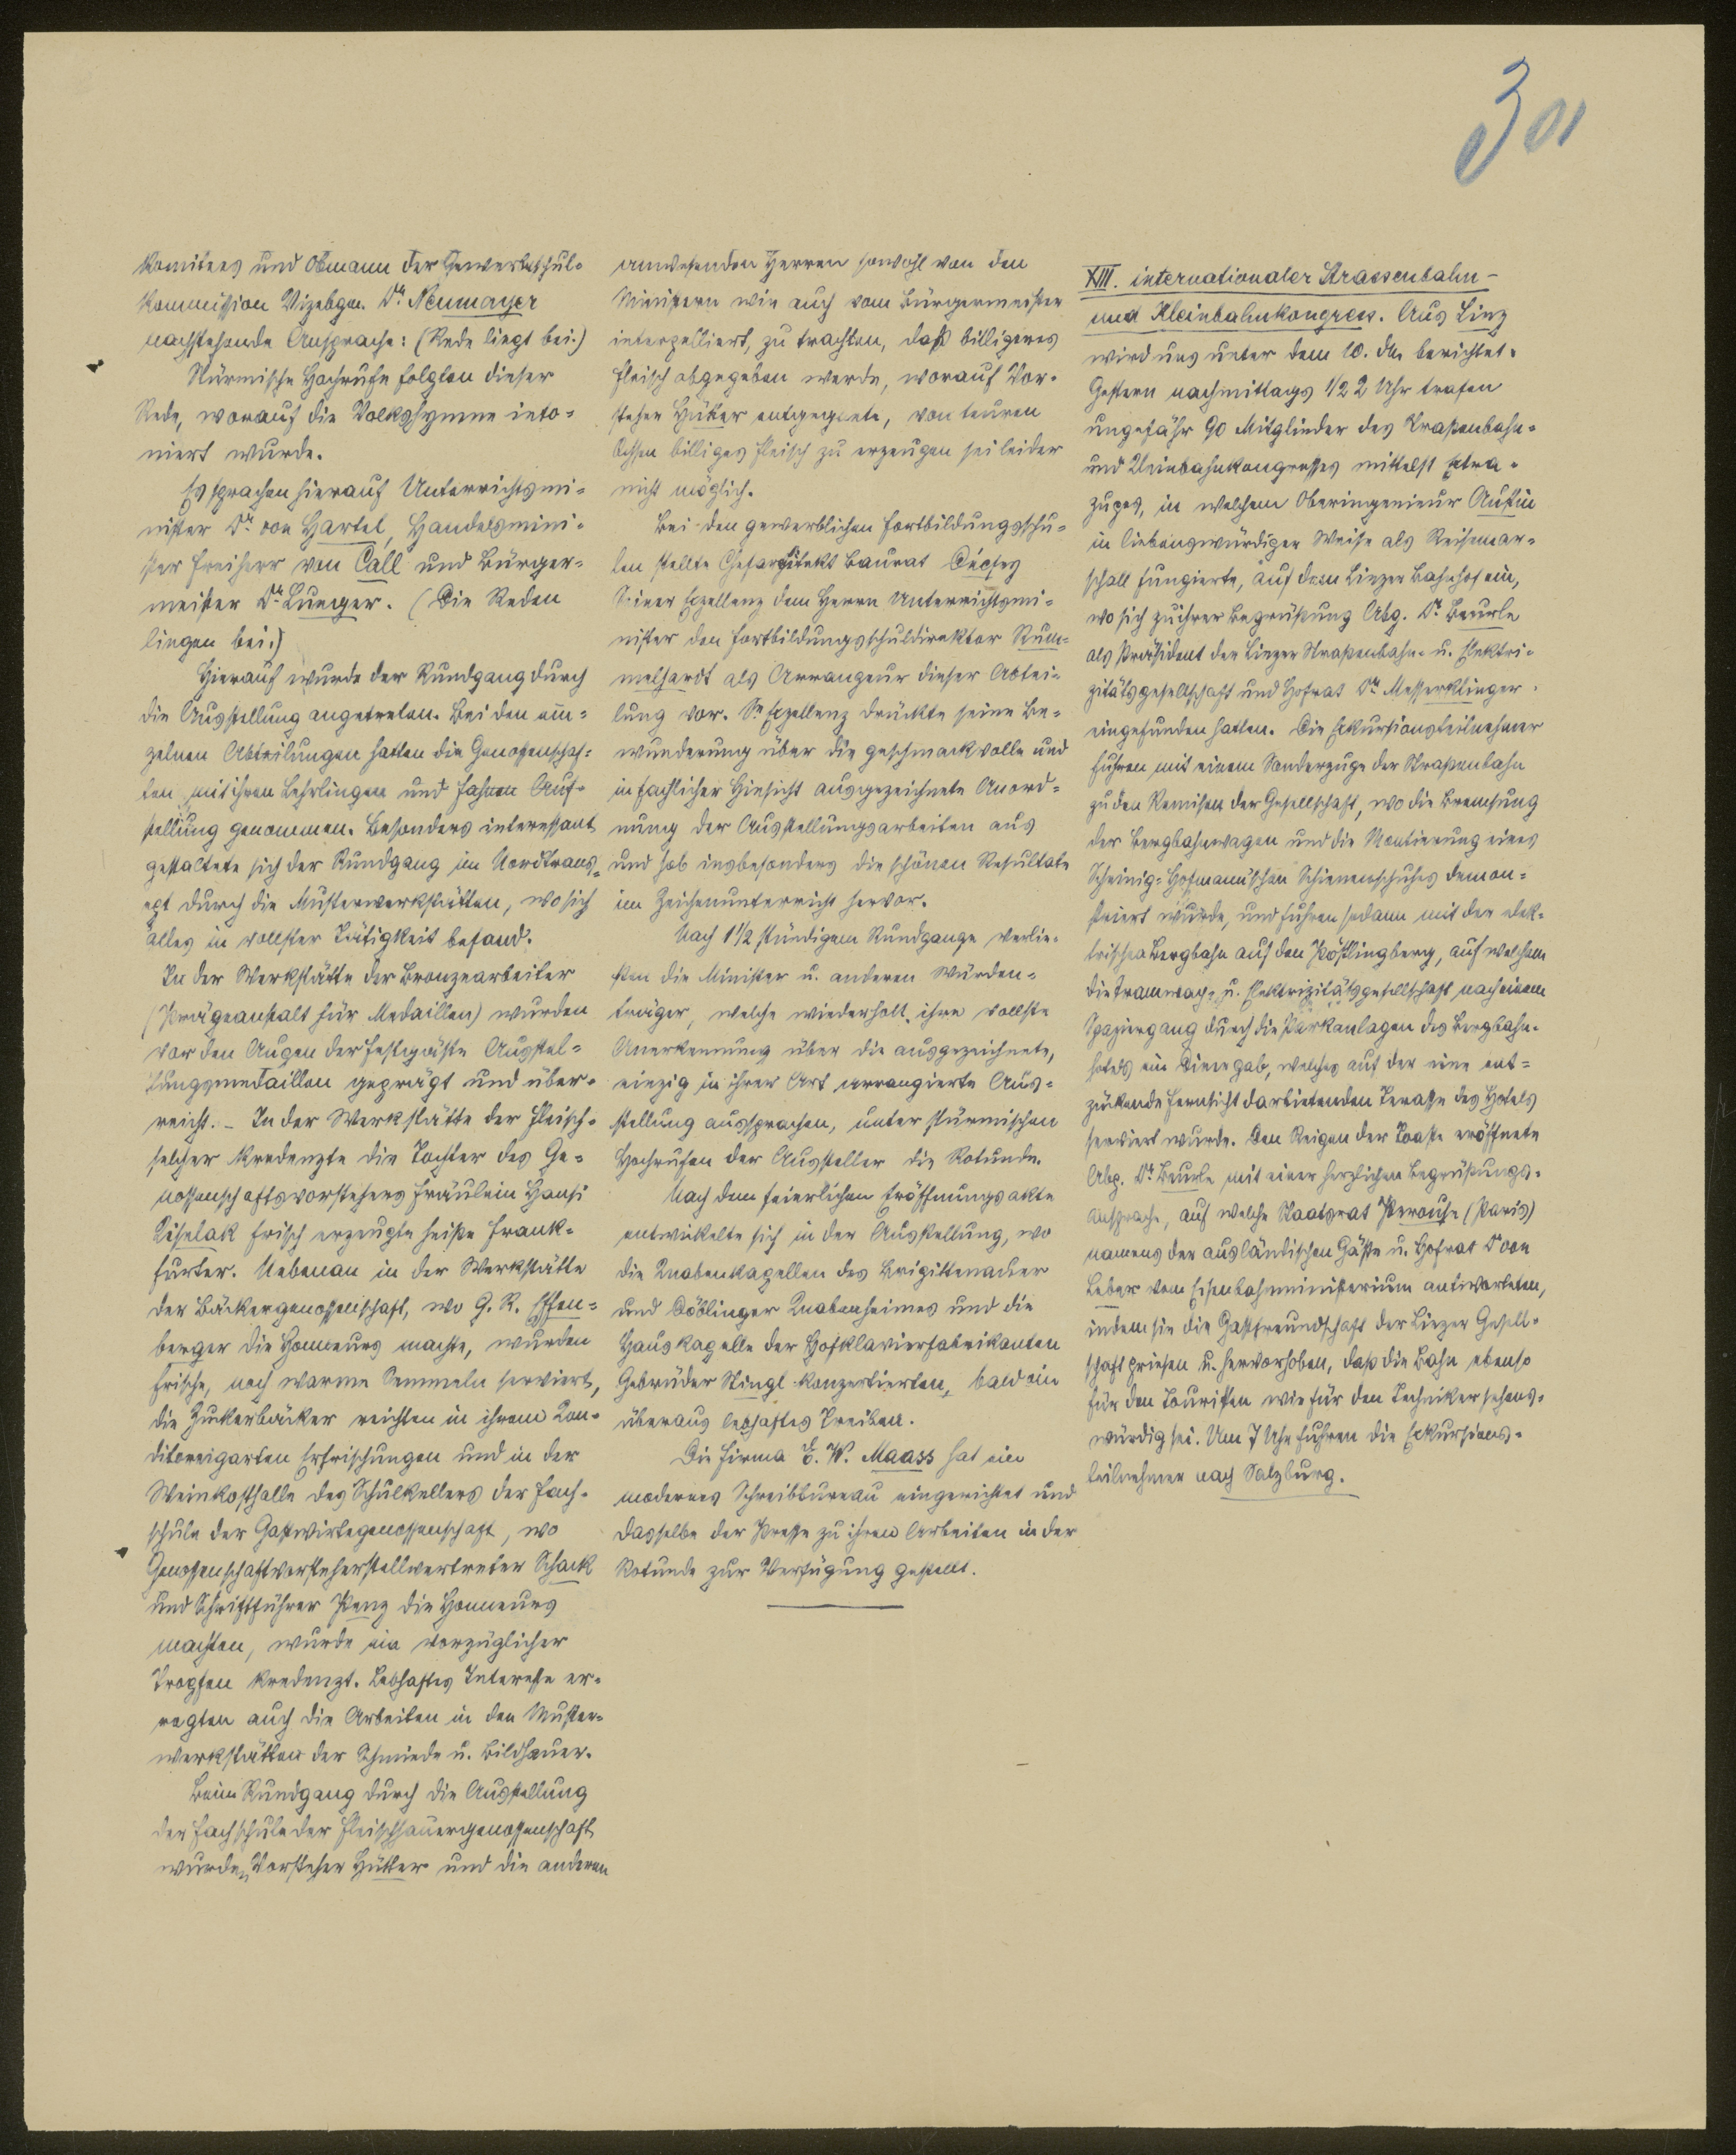 301
Komitees und Obmann der Gewerbeschul-
kommission Vizebgm. Dr. Neumayer
nachstehende Ansprache: (Rede liegt bei.)
Stürmische Hochrufe folgten dieser
Rede, worauf die Volkshymne into-
niert wurde.
Es sprachen hierauf Unterrichtsmi-
nister Dr. von Hartel, Handelsmini-
ster Freiherr von Call und Bürger-
meister Dr. Lueger. (Die Reden
liegen bei.)
Hierauf wurde der Rundgang durch
die Ausstellung angetreten. Bei den ein-
zelnen Abteilungen hatten die Genossenschaf-
ten mit ihren Lehrlingen und Fahnen Auf-
stellung genommen. Besonders interessant
gestaltete sich der Rundgang im Nordtrans-
ept durch die Musterwerkstätten, wo sich
alles in vollster Tätigkeit befand.
In der Werkstätte der Bronzearbeiter
(Prägeanstalt für Medaillen) wurden
vor den Augen der Festgäste Ausstel-
lungsmedaillen geprägt und über-
reicht. – In der Werkstätte der Fleisch-
selcher kredenzte die Tochter des Ge-
nossenschaftsvorstehers Fräulein Hansi
Kiselak frisch erzeugte heiße Frank-
furter. Nebenan in der Werkstätte
der Bäckergenossenschaft, wo G. R. Effen-
berger die Honneurs machte, wurden
frische, noch warme Semmeln serviert,
die Zuckerbäcker reichten in ihrem Kon-
ditoreigarten Erfrischungen und in der
Weinkosthalle des Schulkellers der Fach-
schule der Gastwirtegenossenschaft, wo
Genossenschaftvorsteherstellvertreter Schack
und Schriftführer Penz die Honneurs
machten, wurde ein vorzüglicher
Tropfen kredenzt. Lebhaftes Interesse er-
regten auch die Arbeiten in den Muster-
werkstätten der Schmiede u. Bildhauer.
Beim Rundgang durch die Ausstellung
der Fachschule der Fleischhauergenossenschaft
wurden Vorsteher Hütter und die anderen
anwesenden Herren sowohl von den
Ministern wie auch vom Bürgermeister
interpelliert, zu trachten, daß billigeres
Fleisch abgegeben werde, worauf Vor-
steher Hütter entgegnete, von teuren
Ochsen billiges Fleisch zu erzeugen sei leider
nicht möglich.
Bei den gewerblichen Fortbildungsschu-
len stellte Chefarchitekt Baurat Décsey
Seiner Exzellenz dem Herrn Unterrichtsmi-
nister den Fortbildungsschuldirektor Rum-
melhardt als Arrangeur dieser Abtei-
lung vor. Se. Exzellenz drückte seine Be-
wunderung über die geschmackvolle und
in fachlicher Hinsicht ausgezeichnete Anord-
nung der Ausstellungsarbeiten aus
und hob insbesonders die schönen Resultate
im Zeichenunterricht hervor.
Nach 1 1/2 stündigem Rundgange verlie-
ßen die Minister u. anderen Würden-
träger, welche wiederholt ihre vollste
Anerkennung über die ausgezeichnete,
einzig in ihrer Art arrangierte Aus-
stellung aussprachen, unter stürmischen
Hochrufen der Aussteller die Rotunde.
Nach dem feierlichen Eröffnungsakte
entwickelte sich in der Ausstellung, wo
die Knabenkapellen des Brigittenauer
und Döblinger Knabenheimes und die
Hauskapelle der Hofklavierfabrikanten
Gebrüder Stingl konzertierten, bald ein
überaus lebhaftes Treiben.
Die Firma E. W. Maass hat ein
modernes Schreibbureau eingerichtet und
dasselbe der Presse zu ihren Arbeiten in der
Rotunde zur Verfügung gestellt.
XIII. internationaler Strassenbahn-
und Kleinbahnkongress. Aus Linz
wird uns unter dem 10. ds. berichtet.
Gestern nachmittags 1/2 2 Uhr trafen
ungefähr 90 Mitglieder des Straßenbahn-
und Kleinbahnkongresses mittelst Extra-
zuges, in welchem Oberingenieur Aufin
in liebenswürdiger Weise als Reisemar-
schall fungierte, auf dem Linzer Bahnhof ein,
wo sich zu ihrer Begrüßung Abg. Dr. Beurle
als Präsident der Linzer Straßenbahn- u. Elektri-
zitätsgesellschaft und Hofrat Dr. Messerklinger
eingefunden hatten. Die Exkursionsteilnehmer
fuhren mit einem Sonderzuge der Straßenbahn
zu den Remisen der Gesellschaft, wo die Bremsung
der Bergbahnwagen und die Montierung eines
Scheinig-Hofmann'schen Schienenschuhes demon-
striert wurde, und fuhren sodann mit der elek-
trischen Bergbahn auf den Pöstlingberg, auf welchem
die Tramway- u. Elektrizitätsgesellschaft nach einem
Spaziergang durch die Parkanlagen des Bergbahn-
hotels ein Diner gab, welches auf der eine ent-
zückende Fernsicht darbietenden Terasse des Hotels
serviert wurde. Den Reigen der Toaste eröffnete
Abg. Dr. Beurle mit einer herzlichen Begrüßungs-
ansprache, auf welche Staatsrat Perouse (Paris)
namens der ausländischen Gäste u. Hofrat Dr von
Leber vom Eisenbahnministerium antworteten,
indem sie die Gastfreundschaft der Linzer Gesell-
schaft priesen u. hervorhoben, daß die Bahn ebenso
für den Touristen wie für den Techniker sehens-
würdig sei. Um 7 Uhr fuhren die Exkursions-
teilnehmer nach Salzburg.